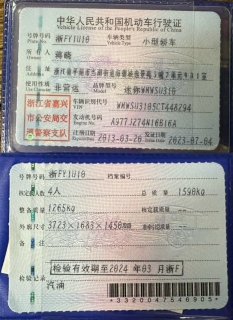 中华人民共和国机动车行驶证
Vehicle License of the People's Republic of China
号牌号码 浙FY1U10 车辆类型 小型轿车
Vehicle Type
所有人
住址
使用性质 非营运 品牌型号 迷你WMWSU310
浙江省嘉兴
市公安局交
通警察支队
车辆识别代号 WMWSU3105CT448294
VIN
发动机号码 A977J274N16B16A
Engine No.
注册日期 2013-03-26 发证日期 2023-07-04
号牌号码 浙FY1U10 档案编号
核定载人数 4人 总质量 1590kg
整备质量 1265kg 核定载质量
外廓尺寸 3723×1683×1456mm 准牵引总质量
备注
检验有效期至2024年03月浙F
检验记录
汽油
*3320047546905*